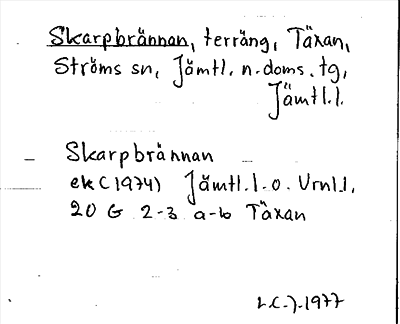 Skarpbrännan, terräng, Täxan,
Ströms sn, Jämtl. n. doms. tg,
Jämtl. l.
Skarpbrännan
ek (1974) Jämtl. l. o. Vrnl. l,
20 G 2-3 a-b Täxan
1977